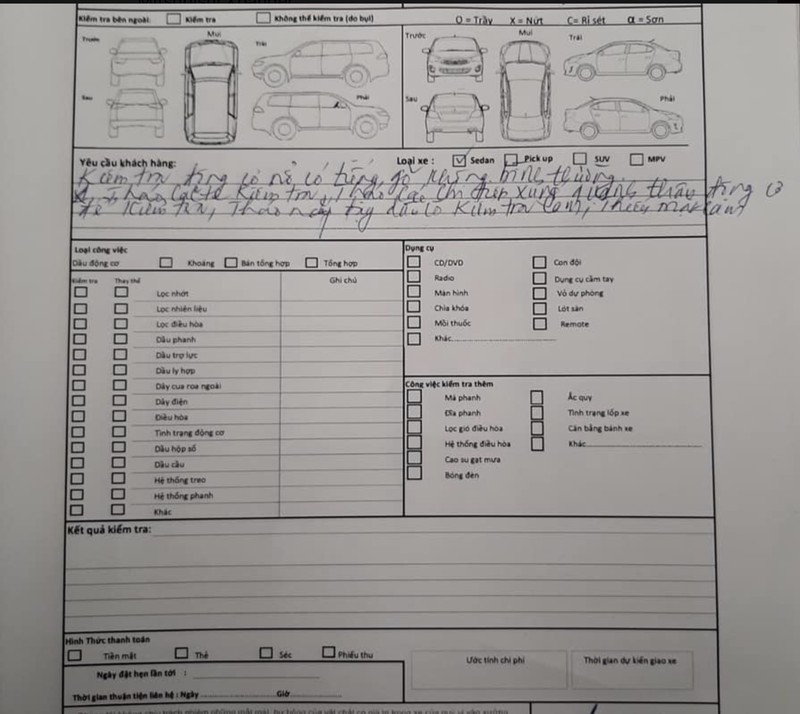 Kiểm tra bên ngoài: Kiểm tra Không thể kiểm tra (do bụi) O = Trầy X = Nứt C= Rỉ sét α = Sơn
Trước Mui Trái
Sau Phải
Trước Mui Trái
Sau Phải
Yêu cầu khách hàng: Loại xe : Sedan Pick up SUV MPV
Kiểm tra động cơ nổ có tiếng gõ không bình thường.
kiểm tra, xung quanh thân động cơ
để kiểm tra, Tháo nắp kiểm tra
Loại công việc
Dầu động cơ Khoáng Bán tổng hợp Tổng hợp
Kiểm tra Thay thế Ghi chú
Lọc nhớt
Lọc nhiên liệu
Lọc điều hòa
Dầu phanh
Dầu trợ lực
Dầu ly hợp
Dây cua roa ngoài
Dây điện
Điều hòa
Tình trạng động cơ
Dầu hộp số
Dầu cầu
Hệ thống treo
Hệ thống phanh
Khác
Dụng cụ
CD/DVD Con đội
Radio Dụng cụ cầm tay
Màn hình Vỏ dự phòng
Chìa khóa Lót sàn
Mồi thuốc Remote
Khác
Công việc kiểm tra thêm
Má phanh Ắc quy
Đĩa phanh Tình trạng lốp xe
Lọc gió điều hòa Cân bằng bánh xe
Hệ thống điều hòa Khác
Cao su gạt mưa
Bóng đèn
Kết quả kiểm tra:
Hình Thức thanh toán
Tiền mặt Thẻ Séc Phiếu thu
Ngày đặt hẹn lần tới :
Thời gian thuận tiện liên hệ : Ngày Giờ
Ước tính chi phí Thời gian dự kiến giao xe